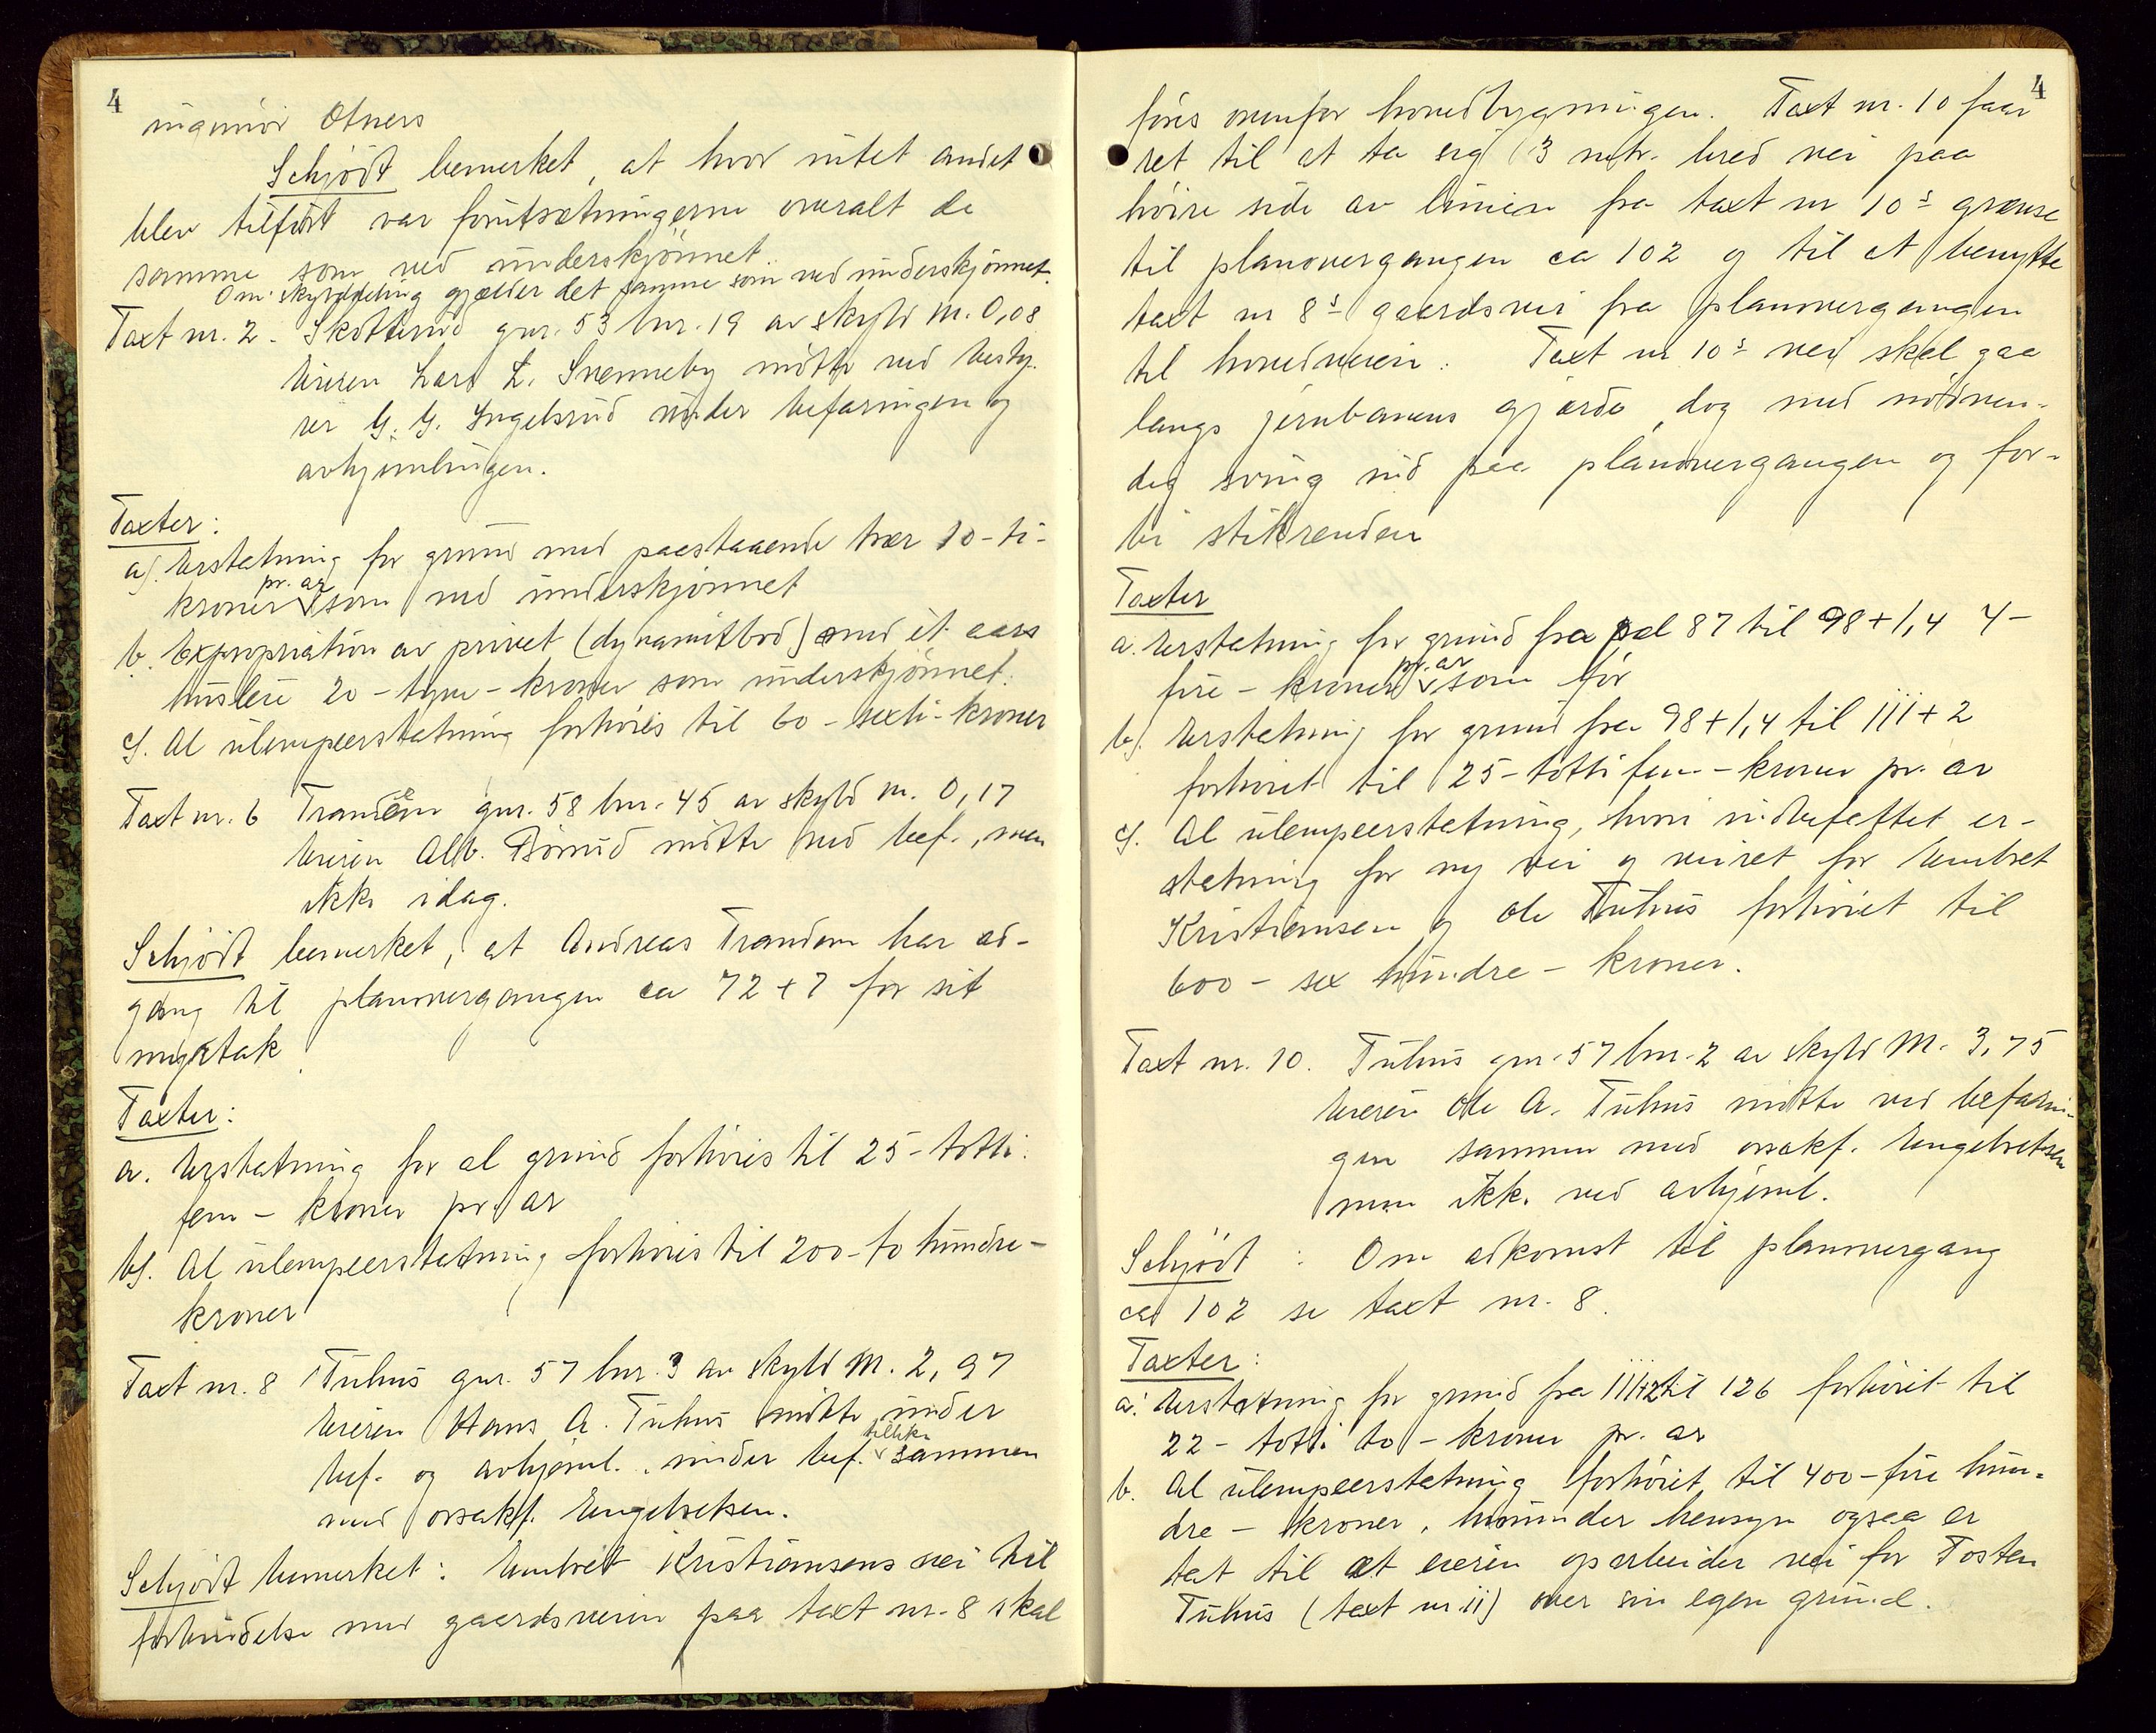 4
ingeniör Otners
Schjödt bemerket, at hvor intet andet
blev tilfört var forutsætningerne overalt de
samme som ved underskjönnet.
Om skylddeling gjælder det samme som ved underskjönnet.
Taxt nr. 2. Skötterud gnr. 53 bnr. 19 av skyld m. 0,08
Eieren Lars L. Svenneby mötte ved besty-
rer G. G. Ingelsrud under befaringen og
avhjemlingen.
Taxter:
a). Erstatning for grund med paastaaende trær 10 - ti -
kroner pr. ar som ved underskjönnet
b. Expropriation av privet (dynamitbod) med et aars
husleie 20 - tyve - kroner som underskjönnet.
c). Al ulempeerstatning forhöies til 60 - sexti - kroner
Taxt nr. 6 Trandem gnr. 58 bnr. 45 av skyld m. 0,17
Eieren Alb. Börud mötte ved bef., men
ikke idag.
Schjödt bemerket, at Andreas Trandem har ad-
gang til planovergangen ca 72 + 7 for sit
myrtak
Taxter:
a. Erstatning for al grund forhöies til 25 - totti
fem - kroner pr. ar
b). Al ulempeerstatning forhöies til 200 - to hundre -
kroner
Taxt nr. 8 Tuhus gnr. 57 bnr. 3 av skyld M. 2,97
Eieren Hans A. Tuhus mötte under
bef. og avhjeml. under bef. tillike sammen
med orsakf. Engebretsen.
Schjödt bemerket: Embret Kristiansens vei til
forbindelse med gaardsveien paa taxt nr. 8 skal
4
föres ovenfor hovedbygningen. Taxt nr. 10 faar
ret til at ta sig 3 mtr. bred vei paa
höire side av linien fra taxt nr 10s grænse
til planovergangen ca 102 og til at benytte
taxt nr 8s gaardsvei fra planovergangen
til hovedveien. Taxt nr 10s vei skal gaa
langs jernbanens gjærde, dog med nödven-
dig sving ind paa planovergangen og for-
bi stikrenden
Taxter
a. Erstatning for grund fra pæl 87 til 98 + 1,4 4 -
fire - kroner pr. ar som för
b). Erstatning for grund fra 98 + 1,4 til 111 + 2
forhöiet til 25 - totti fem - kroner pr. ar
c). Al ulempeerstatning, hvori indbefattet er-
statning for ny vei og veiret for Embret
Kristiansen og Ole Tuhus forhöiet til
600 - sex hundre - kroner.
Taxt nr. 10. Tuhus gnr. 57 bnr. 2 av skyld M. 3,75
Eieren Ole A. Tuhus mötte ved befarin-
gen sammen med orsakf. Engebretsen
men ikke ved avhjeml.
Schjödt: Om adkomst til planovergang
ca 102 se taxt nr. 8.
Taxter:
a. Erstatning for grund fra 111+2 til 126 forhöiet til
22 - totti to - kroner pr. ar
b. Al ulempeerstatning forhöiet til 400 - fire hun-
dre - kroner, herunder hensyn ogsaa er
tat til at eieren oparbeider vei for Tosten
Tuhus (taxt nr. 11) over sin egen grund.